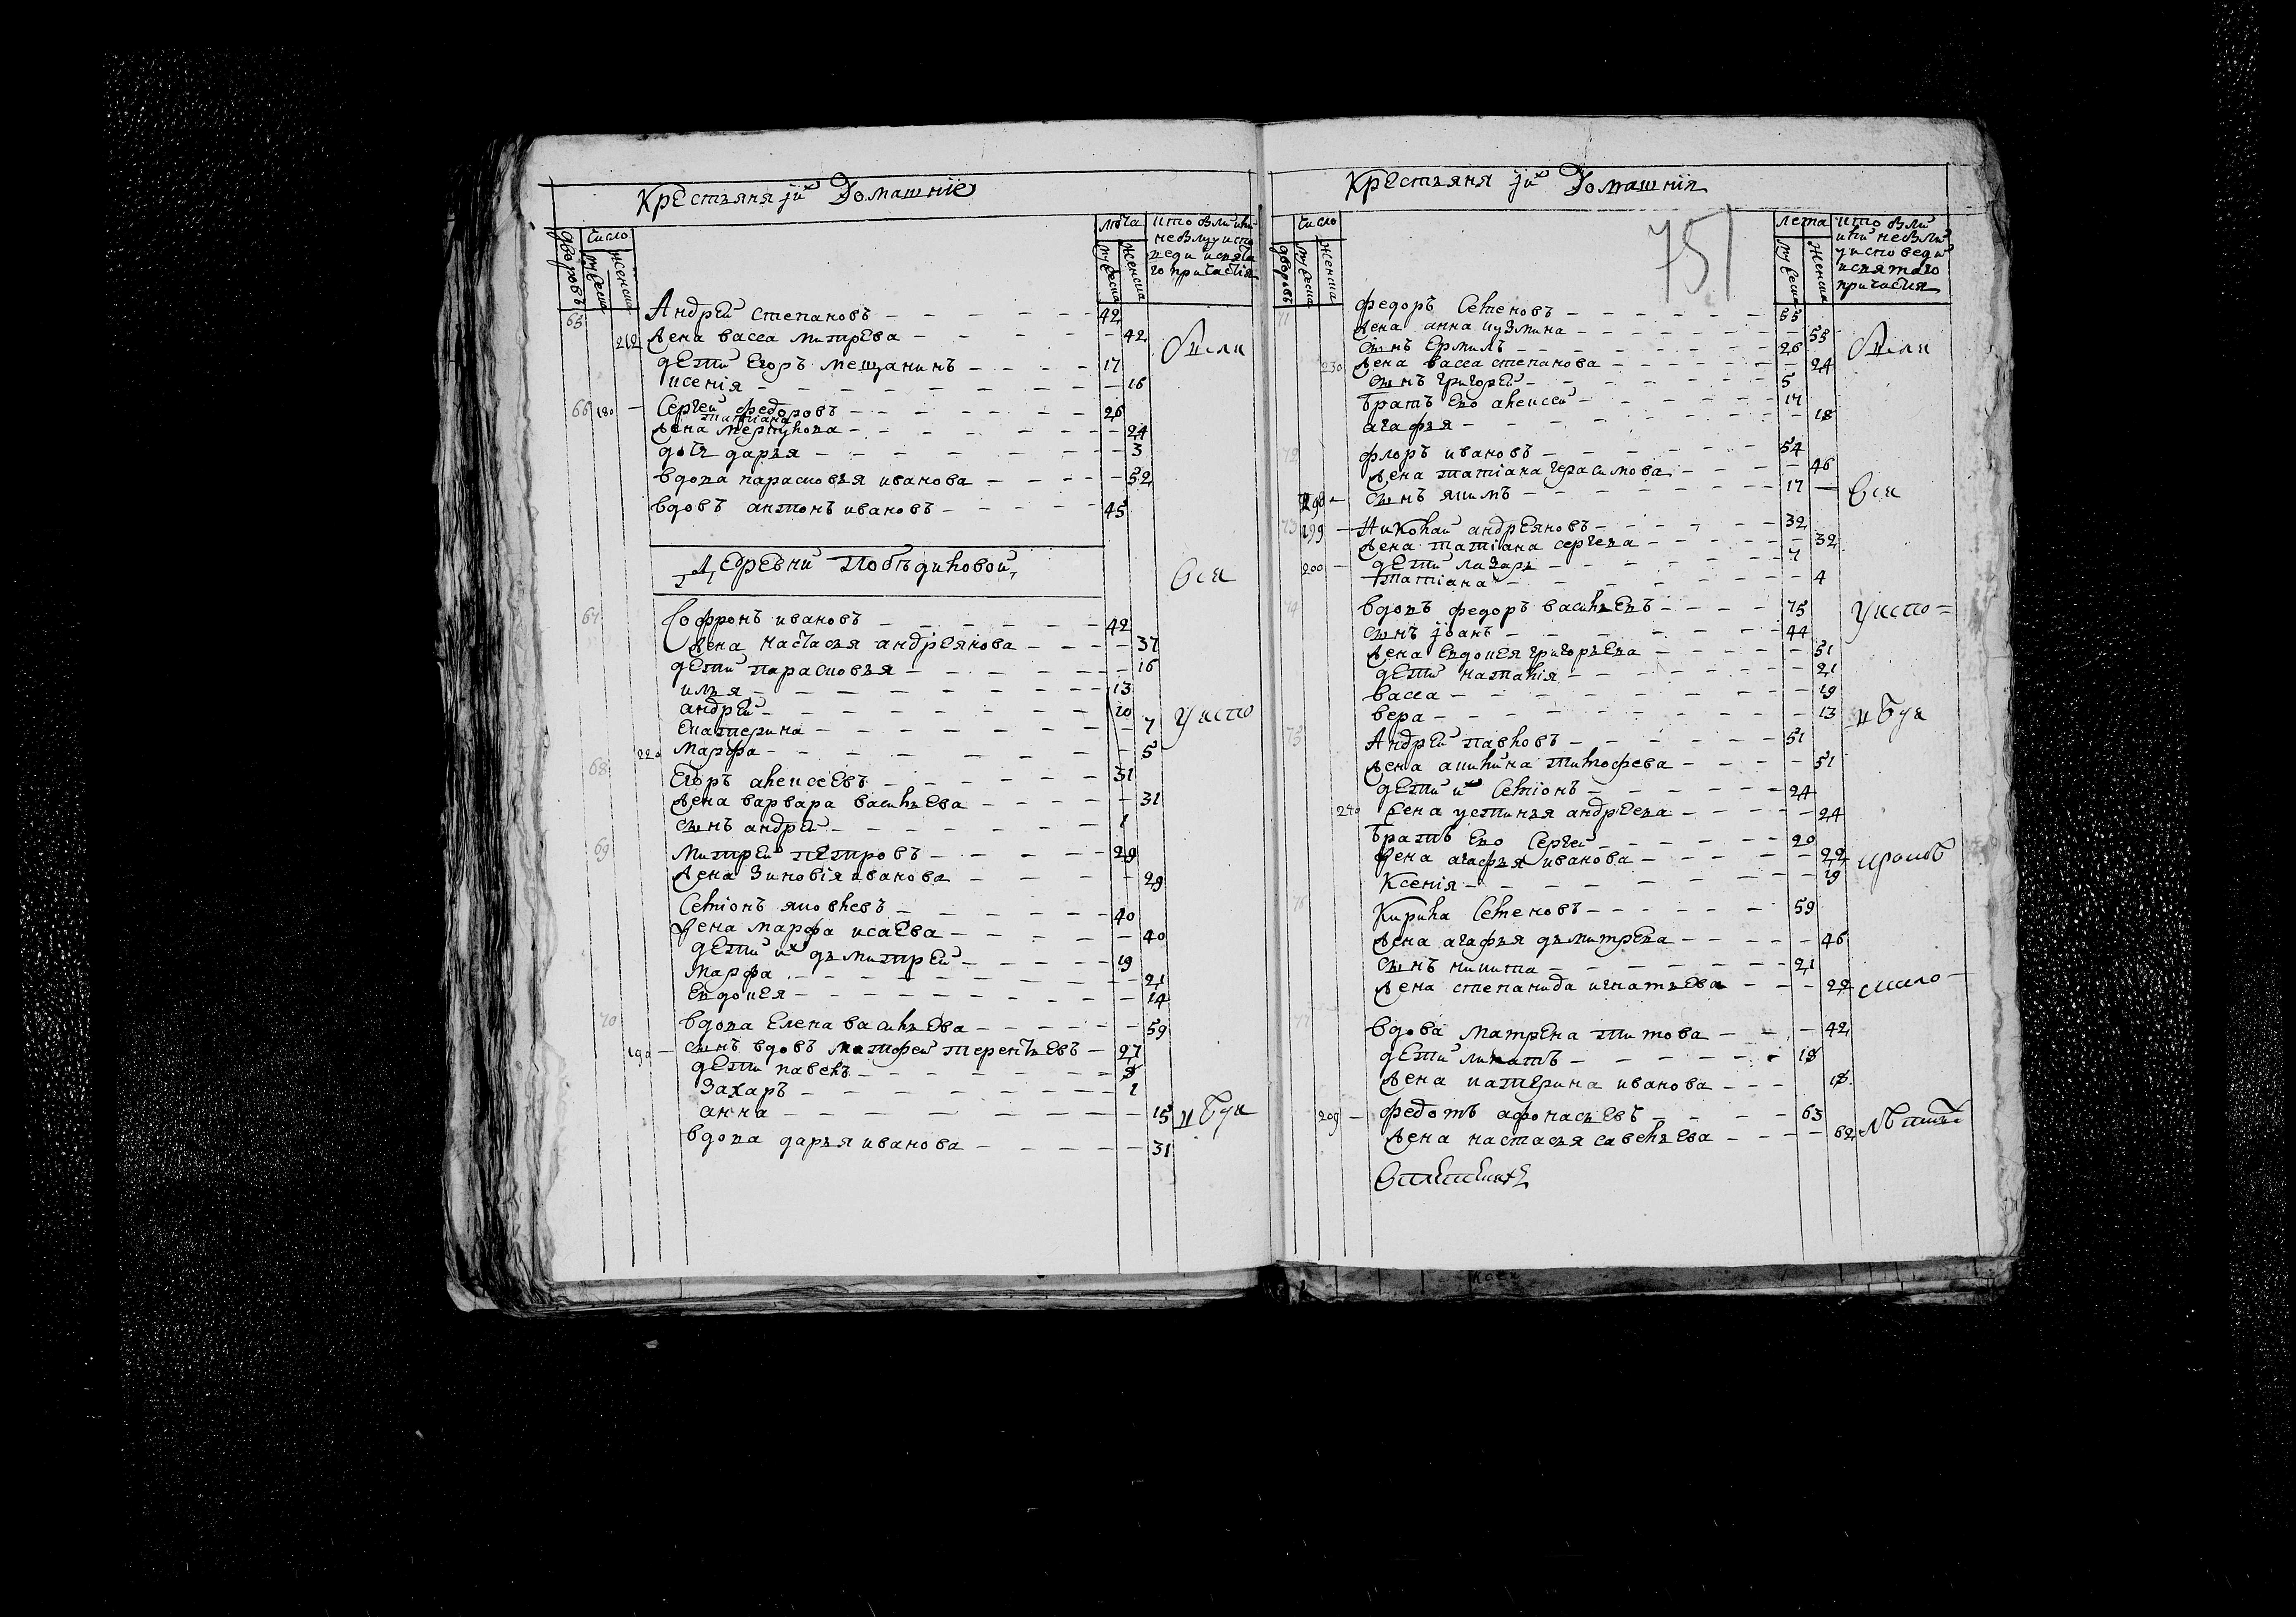 Крестьяня их Домашние
Дворовъ
Число
мужеска
женска
лѣта
мужеска
женска
кто были или
не были у испо
веди и свята
го причастия
65 Андрей степановъ — 42
212 Жена васса митрева — 42
дети Егоръ мещанинъ — 17
ксения — 16
были
66 180 Сергей федоровъ — 26
татиана
Жена — 24
дочь дарья — 3
вдова парасковья иванова — 52
вдовъ антонъ ивановъ — 45
Деревни Побѣдиловой
вси
67 Софронъ ивановъ — 42
Жена настасья андреянова — 37
дети парасковья — 16
илья — 13
андрей — 10
Екатерина — 7
у испо
220 Марфа — 5
68 Егоръ алексеевъ — 31
Жена варвара васильева — 31
сынъ андрей — 1
69 Митрей петровъ — 29
Жена Зиновия иванова — 29
Семионъ яковлевъ — 40
Жена марфа исаева — 40
дети их дьмитрей — 19
Марфа — 21
Евдокея — 14
70 вдова Елена васильева — 59
190 сынъ вдовъ матфей терентьевъ — 27
дети павелъ — 3
Захаръ — 1
анна — 15
и бдя
вдова дарья иванова — 31
Крестьяня их Домашния
751
Число
дворовъ
мужеска
женска
лета
мужеска
женска
кто были
или не были
у исповеди
и святаго
причастия
71 федоръ Семеновъ — 55
Жена анна кузмина — 55
сынъ Ермилъ — 26
230 Жена васса степанова — 24
сынъ григорей — 5
были
братъ Ево алексей — 17
агафья — 18
72 флоръ ивановъ — 54
Жена татиана герасимова — 46
198 сынъ якимъ — 17
вси
73 199 Николай андреяновъ — 32
Жена татиана сергева — 32
200 дети лазарь — 7
татиана — 4
74 вдовъ федоръ васильевъ — 75
у испо=
сынъ иоанъ — 44
Жена Евдокея григорьева — 51
дети наталия — 21
васса — 19
вера — 13
и бдя
75 Андрей павловъ — 51
Жена акилина тимофева — 51
дети их Семионъ — 24
240 Жена устинья андреева — 24
братъ Ево Сергей — 20
Жена агафья иванова — 22
Ксения — 19
кромѣ
76 Кирила Семеновъ — 59
Жена агафья дьмитрева — 46
сынъ никита — 21
Жена степанида игнатьева — 22
мало
77 вдова матрена титова — 42
дети — 18
Жена катерина иванова — 18
209 федотъ афонасьевъ — 63
Жена настасья савельева — 62
лѣтныхъ